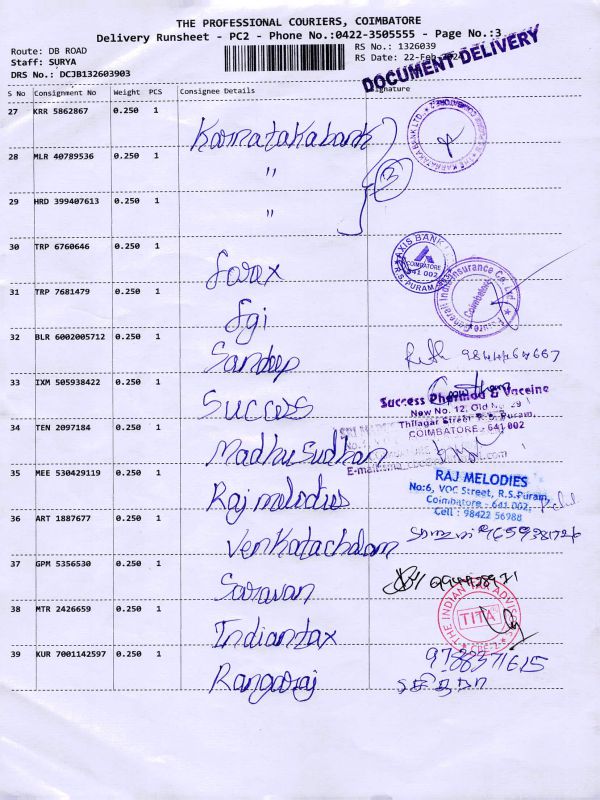 THE PROFESSIONAL COURIERS, COIMBATORE
Delivery Runsheet - PC2 - Phone No.:0422-3505555 - Page No.:3
Route: DB ROAD
Staff: SURYA
DRS No.: DCJB132603903
RS No.: 1326039
RS Date: 22-Feb-2024
DOCUMENT DELIVERY
S No Consignment No Weight PCS Consignee Details Signature
27 KRR 5862867 0.250 1 Karnataka bank
28 MLR 40789536 0.250 1 "
29 HRD 399407613 0.250 1 "
30 TRP 6760646 0.250 1 AXIS BANK COIMBATORE 641 002 R.S.PURAM
31 TRP 7681479 0.250 1 fgi Future Generali India Insurance Co. Ltd. Coimbatore
32 BLR 6002005712 0.250 1 Sandeep
33 IXM 505938422 0.250 1 Success
Success Pharmad & Vaccine
New No. 12, Old No. 29
Thilagar Street R.S. Puram,
COIMBATORE - 641 002
34 TEN 2097184 0.250 1 Madhu Sudhan
35 MEE 530429119 0.250 1 Raj melodies
RAJ MELODIES
No:6, VOC Street, R.S.Puram,
Coimbatore - 641 002.
Cell : 98422 56988
36 ART 1887677 0.250 1 Venkatachalam
37 GPM 5356530 0.250 1 Saravan
38 MTR 2426659 0.250 1 Indiantax
TITA
39 KUR 7001142597 0.250 1 Rangaraj 9788371615